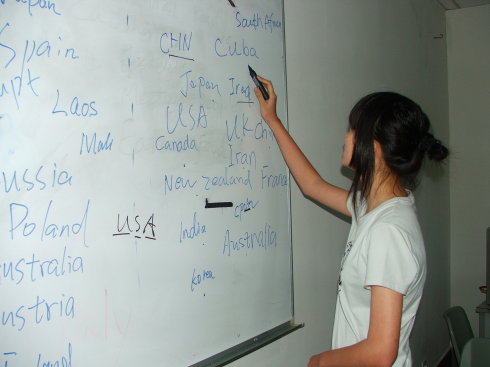 Japan
South Africa
Spain
CHN Cuba
Japan Iraq
Laos
USA UK
Canada
Iran
ussia
New Zealand France
Poland USA
India
Australia
ustralia
Korea
ustria